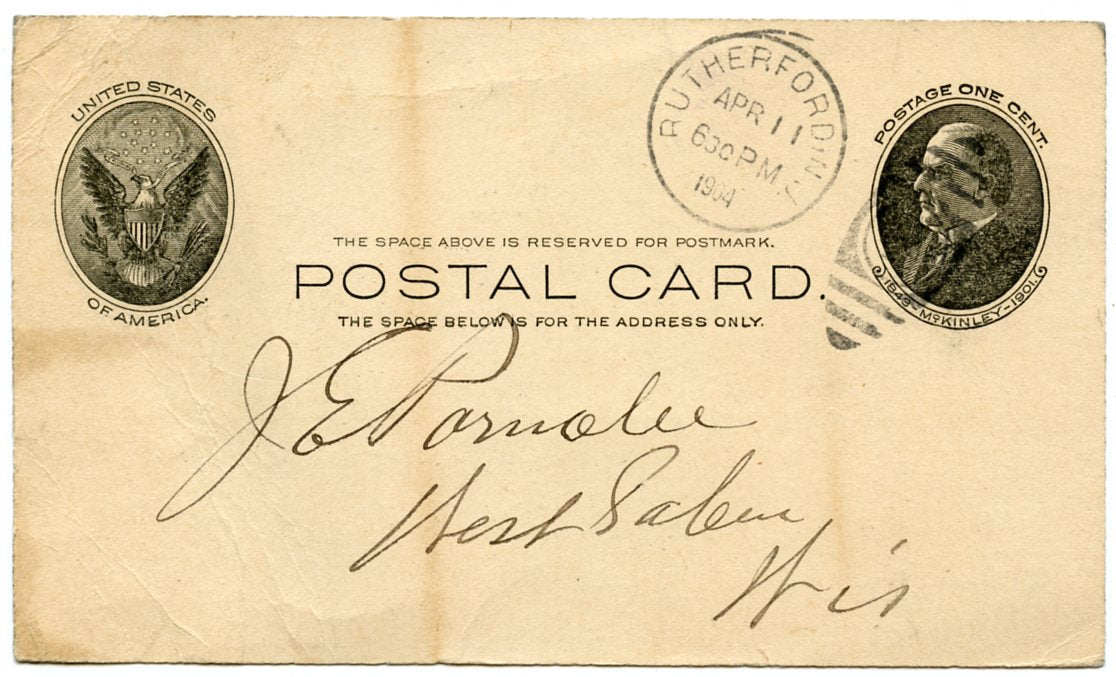 UNITED STATES
OF AMERICA.
RUTHERFORD, N.J.
APR 11
630 P.M.
1904
POSTAGE ONE CENT.
1843-McKINLEY-1901.
THE SPACE ABOVE IS RESERVED FOR POSTMARK.
POSTAL CARD.
THE SPACE BELOW IS FOR THE ADDRESS ONLY.
J E Parmalee
West Salem
Wis